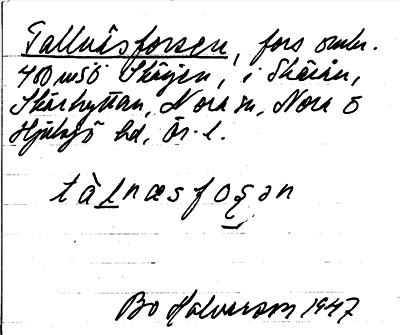 Tallnäsforsen, fors omkr.
400 m SÖ Skärjen, i Skärån,
Skärhyttan, Nora sn, Nora o
Hjulsjö hd, Ör. l.
tàl̲næsfoʂən
Bo Halvarson 1947